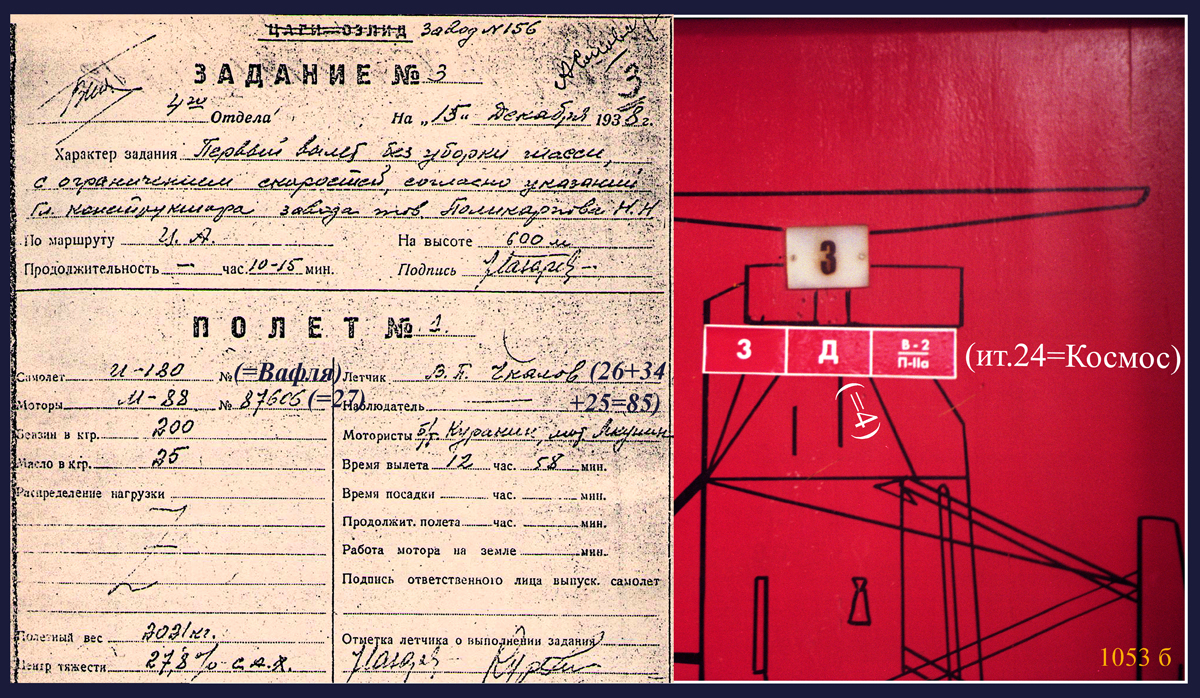 ЦАГИ–ОЭЛИД Завод №156
ЗАДАНИЕ № 3
3
4го Отдела На „15" Декабря 1938 г.
Характер задания Первый вылет без уборки шасси,
с ограничением скоростей, согласно указаний
Гл. конструктора завода тов. Поликарпова Н.Н
По маршруту Ц. А. На высоте 600 м
Продолжительность — час. 10-15 мин. Подпись
ПОЛЕТ № 1.
Самолет И-180 № (=Вафля) Летчик В. П. Чкалов (26+34
Моторы М-88 № 87606 (=27) Наблюдатель +25=85)
Бензин в кгр. 200 Мотористы б/м Куракин, мот Якунин
Масло в кгр. 25 Время вылета 12 час. 58 мин.
Распределение нагрузки Время посадки час. мин.
Продолжит. полета час. мин.
Работа мотора на земле мин.
Подпись ответственного лица выпуск. самолет
Полетный вес 2021 кг. Отметка летчика о выполнении задания
Центр тяжести 27,8% с.а.х.
3
3 Д В-2 П-IIа (ит.24=Космос)
(=4)
1053 б